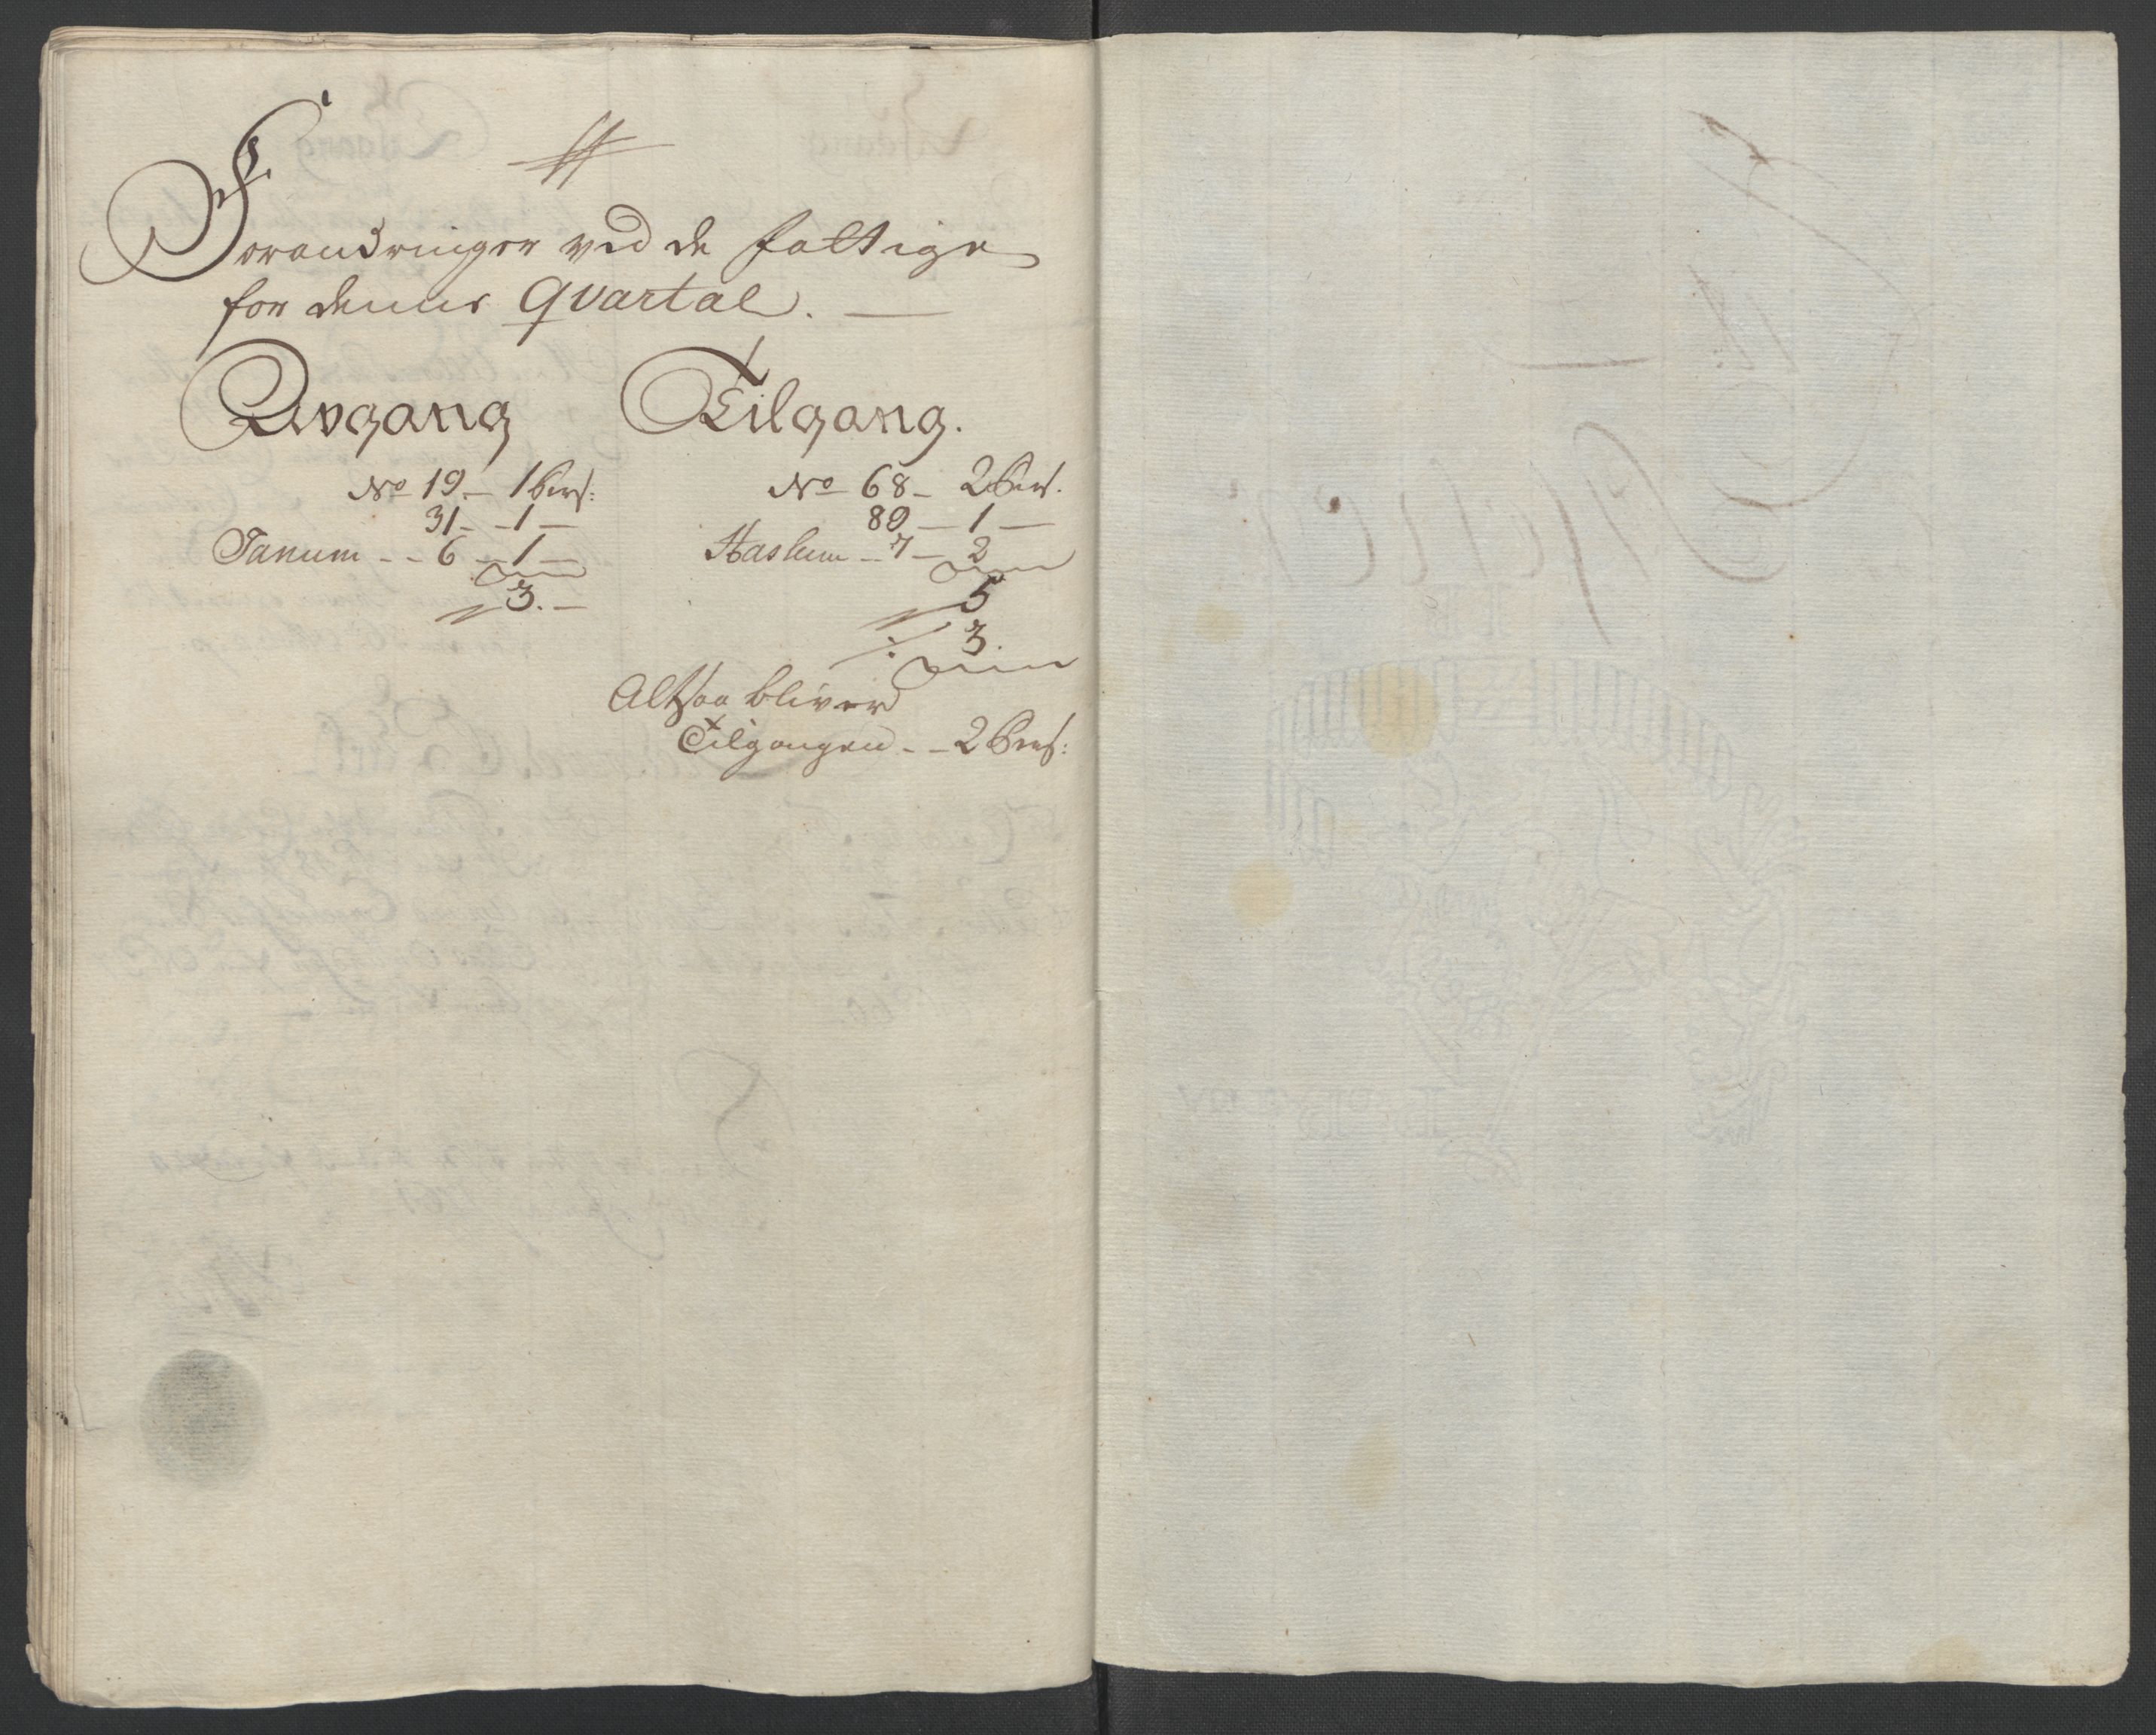 Forandringer ved de fattige
for dennr Qvartal. —
Avgang
No 19 — 1 Pers:
31 — 1 —
Tanum -- 6 — 1 —
3. —
Tilgang.
No 68 — 2 Pers.
89 — 1 —
Haslum -- 7 — 2
5
÷ 3.
Altsaa bliver
Tilgangen -- 2 Pers: